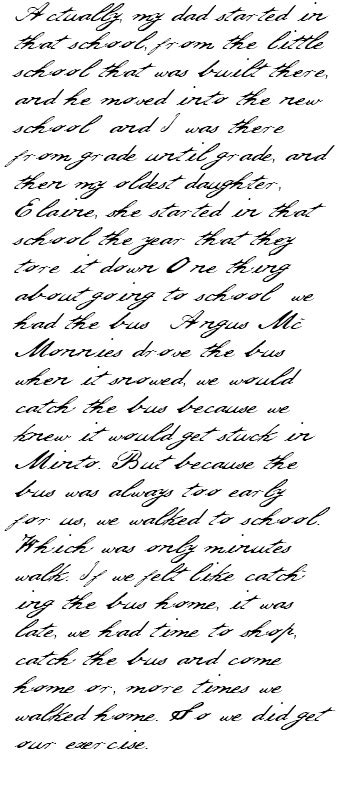 Actually, my dad started in
that school, from the little
school that was built there,
and he moved into the new
school and I was there
from grade until grade, and
then my oldest daughter,
Elaine, she started in that
school the year that they
tore it down One thing
about going to school we
had the bus Angus Mc
Monnies drove the bus
when it snowed, we would
catch the bus because we
knew it would get stuck in
Minto. But because the
bus was always too early
for us, we walked to school.
Which was only minutes
walk. If we felt like catch
ing the bus home, it was
late, we had time to shop,
catch the bus and come
home or, more times we
walked home. So we did get
our exercise.